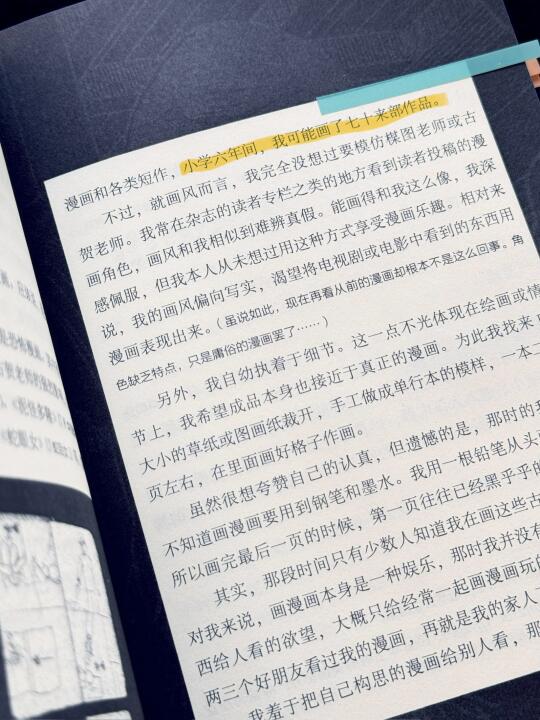 漫画和各类短作，小学六年间，我可能画了七十来部作品。
不过，就画风而言，我完全没想过要模仿楳图老师或古
贺老师。我常在杂志的读者专栏之类的地方看到读者投稿的漫
画角色，画风和我相似到难辨真假。能画得和我这么像，我深
感佩服，但我本人从未想过用这种方式享受漫画乐趣。相对来
说，我的画风偏向写实，渴望将电视剧或电影中看到的东西用
漫画表现出来。（虽说如此，现在再看从前的漫画却根本不是这么回事。角
色缺乏特点，只是庸俗的漫画罢了……）
另外，我自幼执着于细节。这一点不光体现在绘画或情
节上，我希望成品本身也接近于真正的漫画。为此我找来
大小的草纸或图画纸裁开，手工做成单行本的模样，一本
页左右，在里面画好格子作画。
虽然很想夸赞自己的认真，但遗憾的是，那时的我
不知道画漫画要用到钢笔和墨水。我用一根铅笔从头
所以画完最后一页的时候，第一页往往已经黑乎乎的
其实，那段时间只有少数人知道我在画这些古
对我来说，画漫画本身是一种娱乐，那时我并没有
西给人看的欲望，大概只给经常一起画漫画玩的
两三个好朋友看过我的漫画，再就是我的家人
我羞于把自己构思的漫画给别人看，那